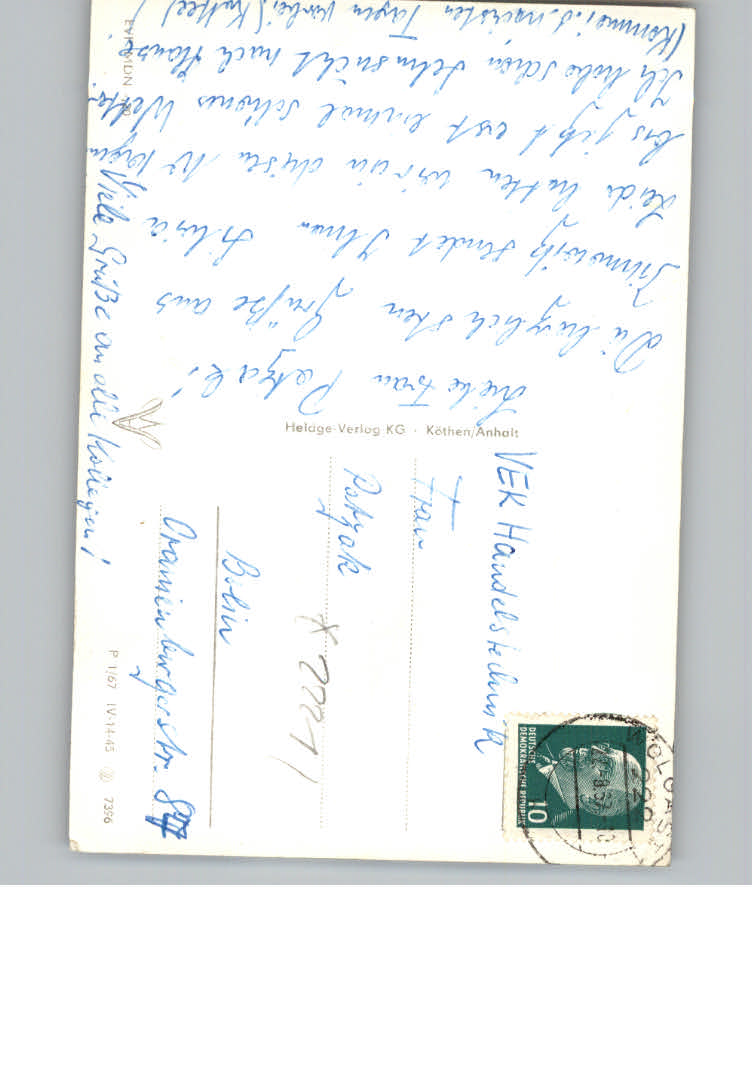 Liebe Frau Petzak!
Die herzlichsten Grüße aus
Zinnowitz sendet Ihnen Silvia
Leider hatten wir in diesen 14 Tagen
bis jetzt erst einmal schönes Wetter.
Ich habe schon Sehnsucht nach Hause!
(Komme i. d. nächsten Tagen vorbei (Kaffee)!
Viele Grüße an alle Kollegen!
Helage-Verlag KG · Köthen/Anhalt
VEK Handelstechnik
Frau
Petzak
Berlin
Oranienburgerstr.
P 1/67 IV-14-45 7396
DEUTSCHE
DEMOKRATISCHE REPUBLIK
10
WOLGAST